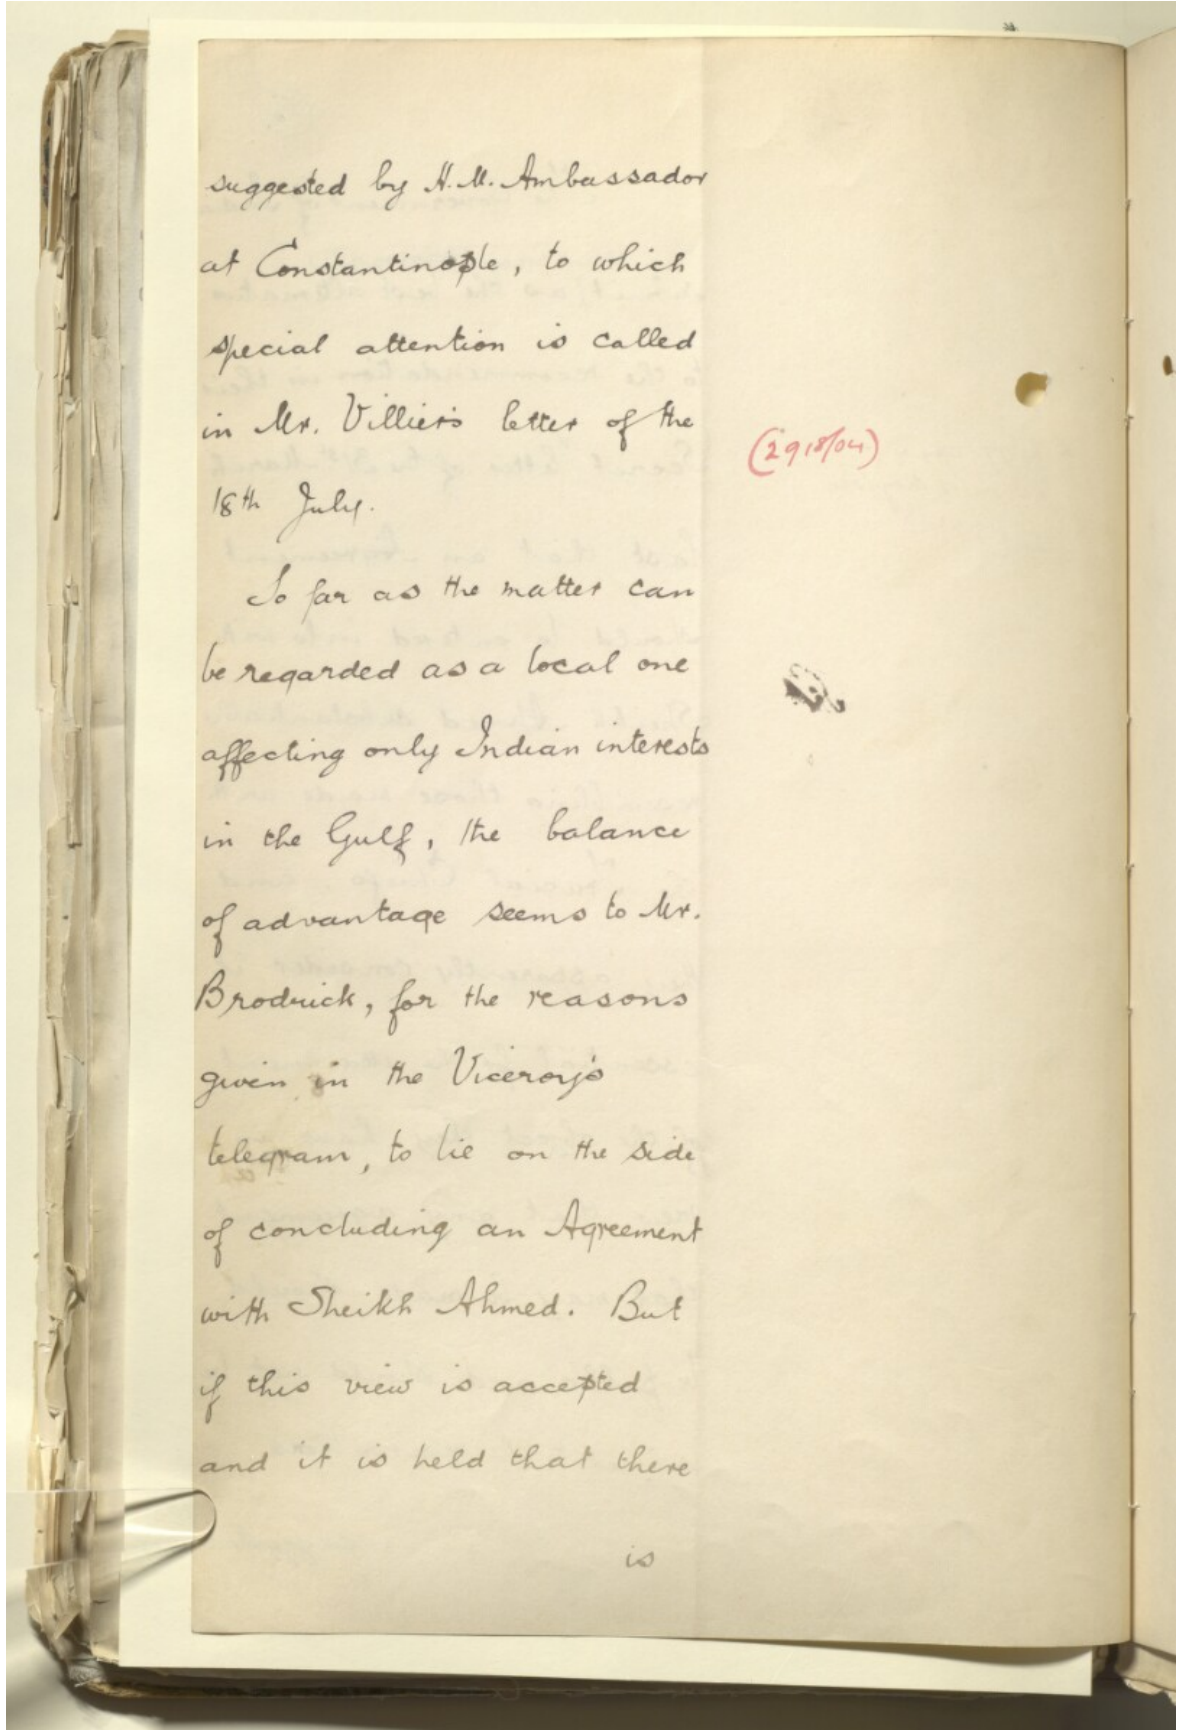 suggested by H.M. Ambassador
at Constantinople, to which
special attention is called
in Mr. Villiers letter of the
(2918/04)
18th July.
So far as the matter can
be regarded as a local one
affecting only Indian interests
in the Gulf, the balance
of advantage seems to Mr.
Brodrick, for the reasons
given in the Viceroy's
telegram, to lie on the side
of concluding an Agreement
with Sheikh Ahmed. But
if this view is accepted
and it is held that there
is